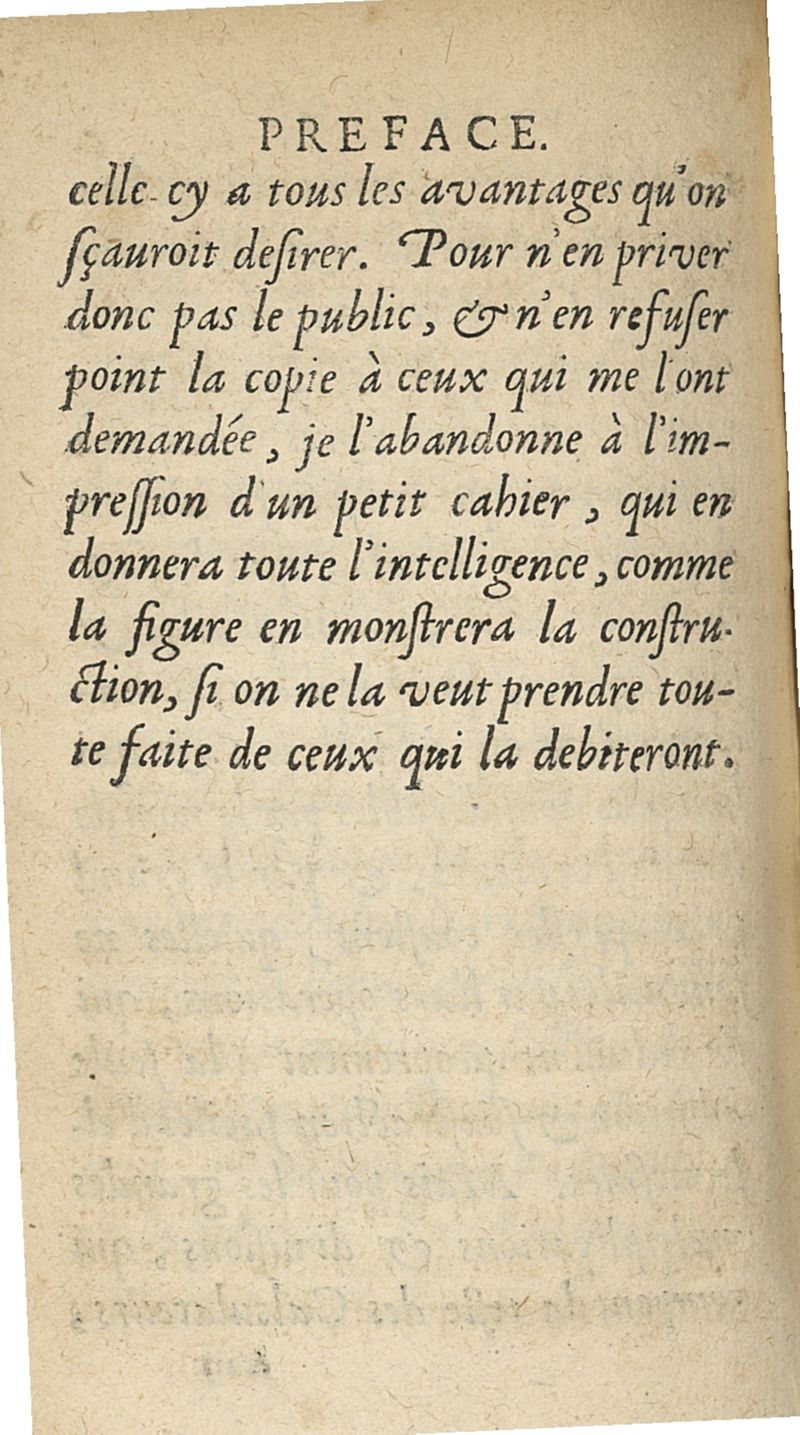 PREFACE.
celle-cy a tous les avantages qu'on
sçauroit desirer. Pour n'en priver
donc pas le public, & n'en refuser
point la copie à ceux qui me l'ont
demandée, je l'abandonne à l'im-
pression d'un petit cahier, qui en
donnera toute l'intelligence, comme
la figure en monstrera la constru-
ction, si on ne la veut prendre tou-
te faite de ceux qui la debiteront.